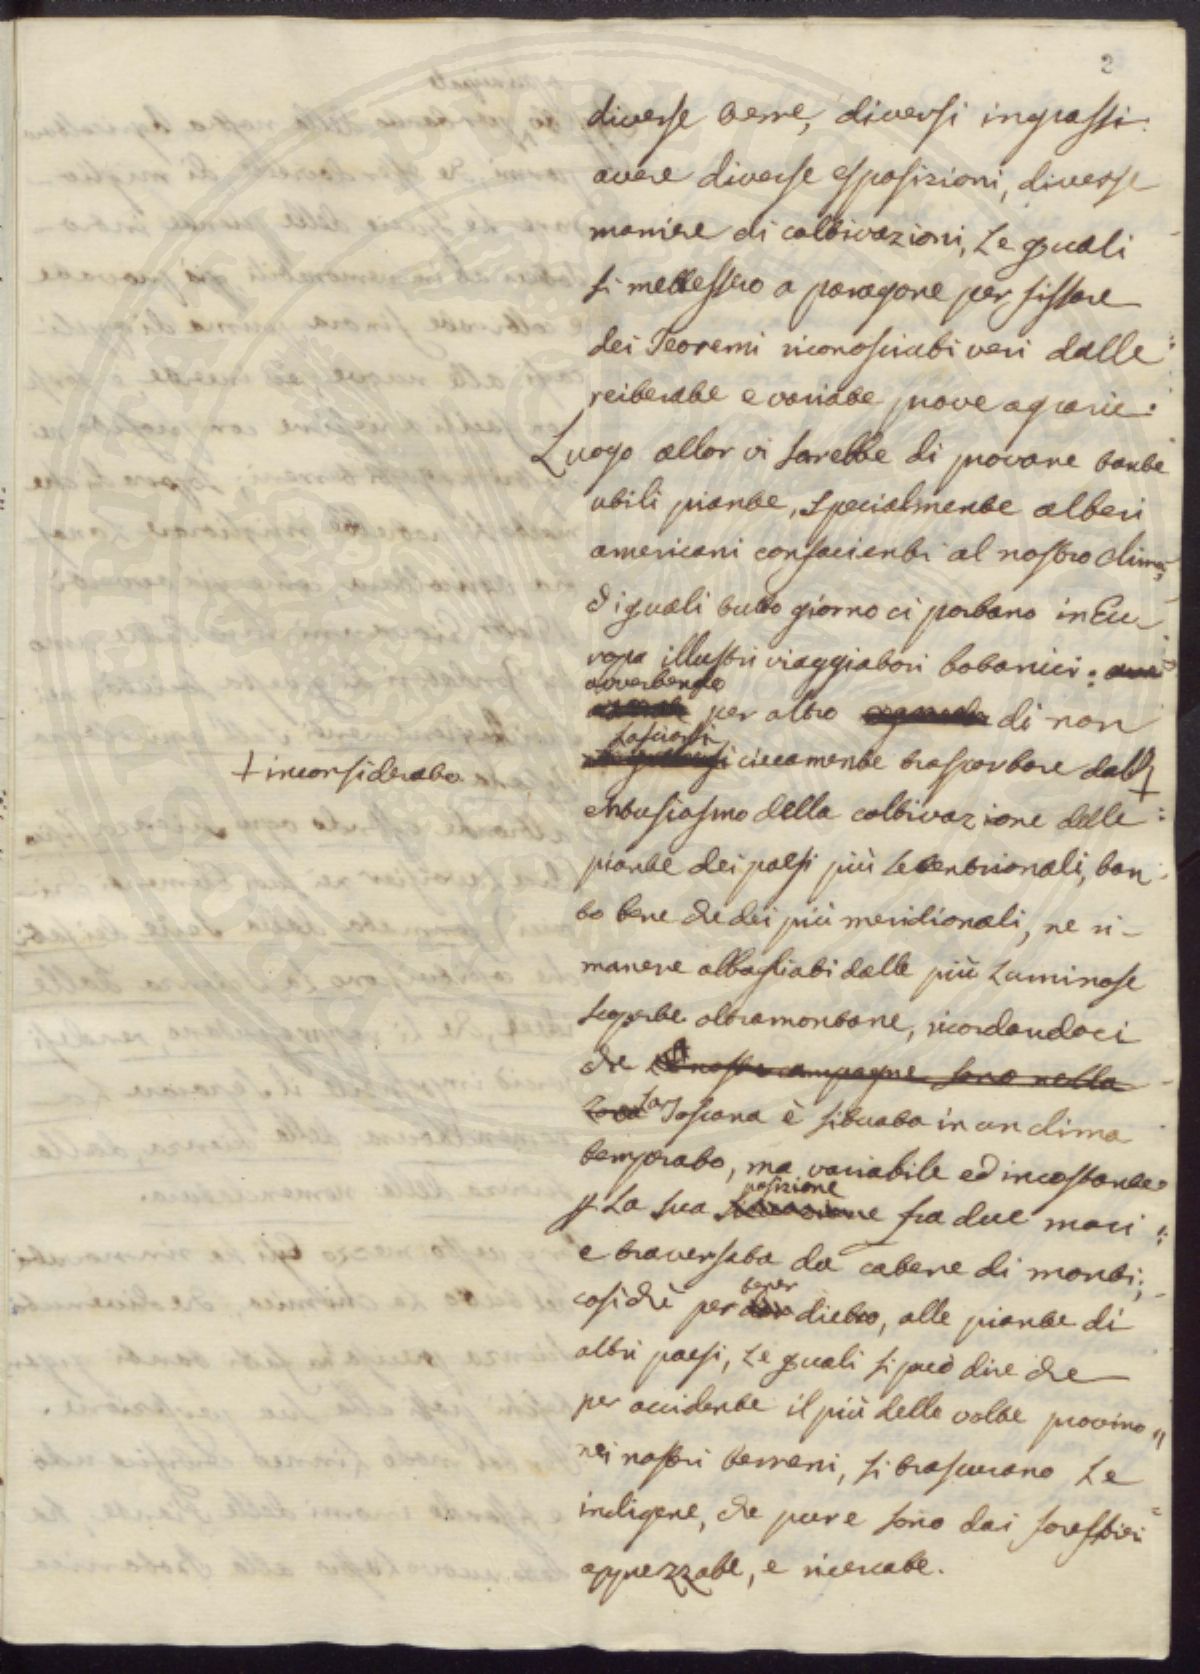 2
diverse terre, diversi ingrassi:
avere diverse esposizioni, diverse
maniere di coltivazioni, le quali
si mettessero a paragone per fissare
dei Teoremi riconosciuti veri dalle
reiterate e variate prove agrarie:
Luogo allor vi sarebbe di provare tante
utili piante, specialmente alberi
americani confacienti al nostro clima,
di quali tutto giorno ci portano in Eu-
ropa illustri viaggiatori botanici:
avvertendo
per altro di non
lasciarsi
ciecamente trasportare dall'
+ inconsiderato
entusiasmo della coltivazione delle
piante dei paesi più settentrionali, tan-
to bene che dei più meridionali, ne ri-
manere abbagliati dalle più luminose
scoperte oltramontane, ricordandoci
che le nostre campagne sono nella
la Toscana è situata in un clima
temperato, ma variabile ed incostante
p. la sua situazione fra due mari
posizione
e traversata da catene di monti;
tener
cosicchè per dietro, alle piante di
altri paesi, le quali si può dire che
per accidente il più delle volte provino
nei nostri terreni, si trascurano le
indigene, che pure sono dai forestieri
apprezzate, e ricercate.